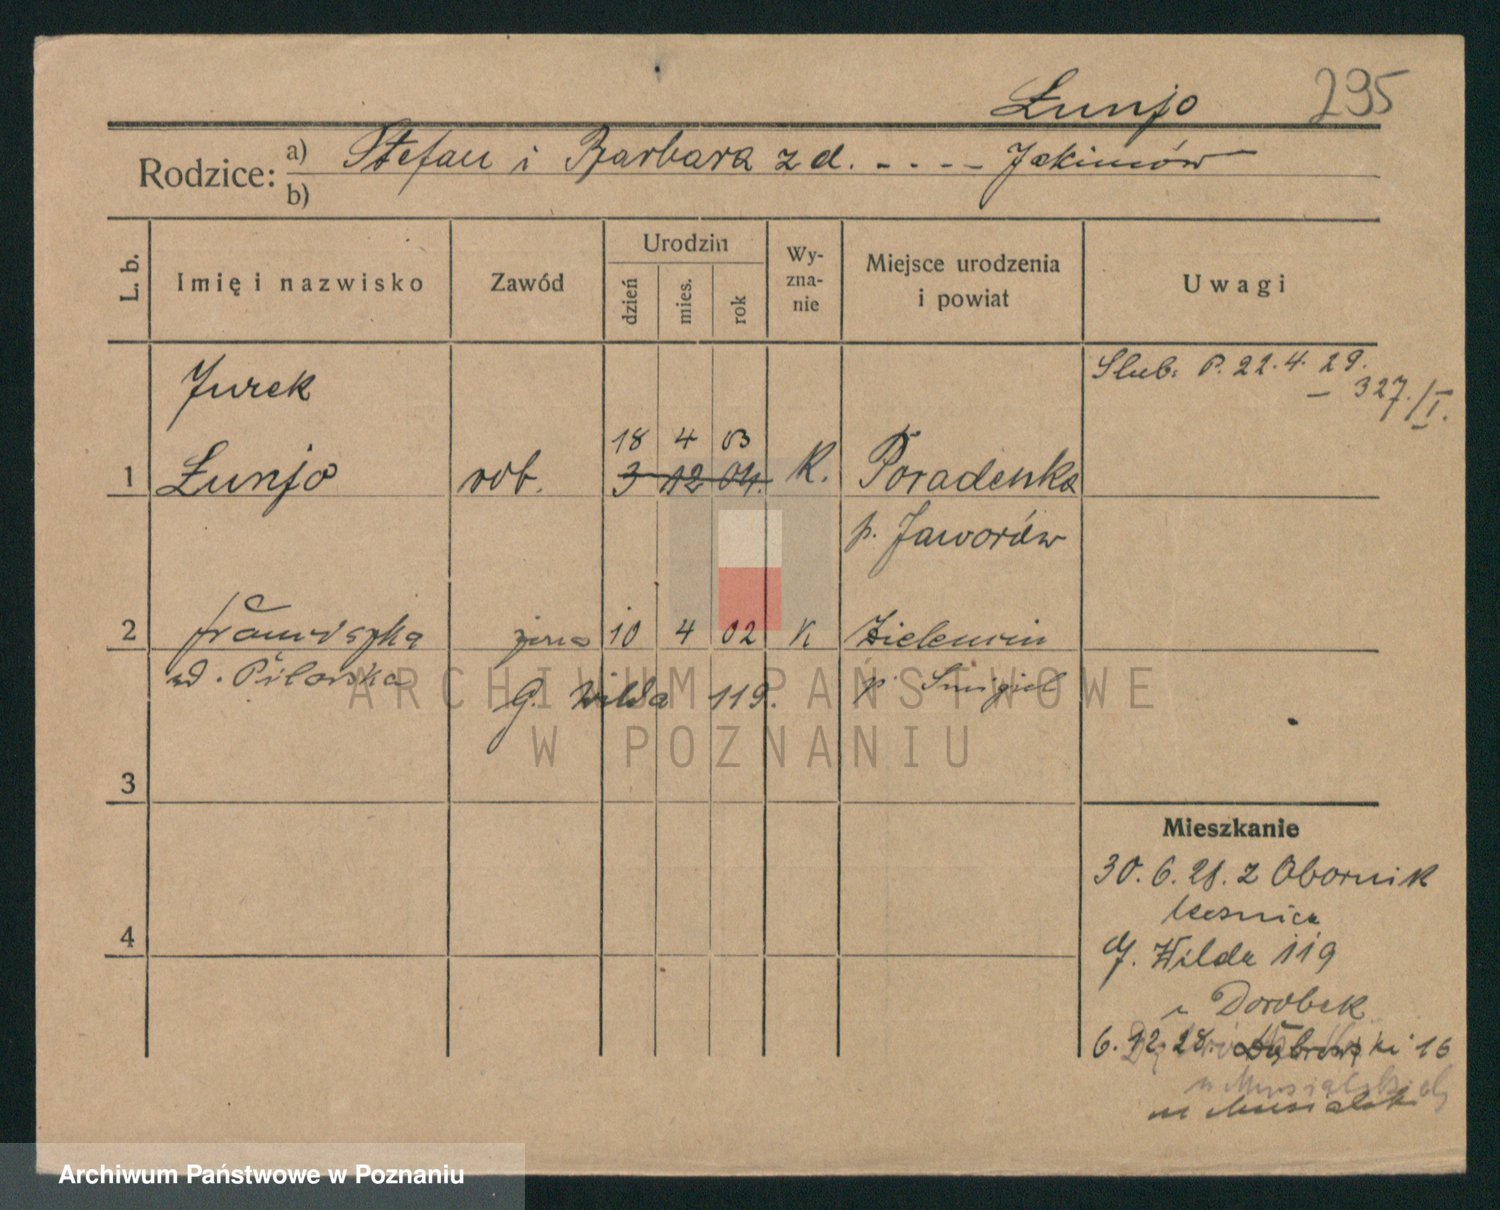 Łunjo 295
Rodzice: a) Stefan i Barbara z d. - - - - Jakimów
b)
L. b. Imię i nazwisko Zawód Urodzin dzień mies. rok Wy-zna-nie Miejsce urodzenia i powiat Uwagi
Jurek Ślub: P. 22. 4. 29.
– 327./I.
18 4 03
1 Łunjo rob. 3 12 04. K. Poradenka
p. Jaworów
2 Franciszka żona 10 4 02 K Zielencin
z d. Pilarska G. Wilda 119. p. Śmigiel
ARCHIWUM PAŃSTWOWE
W POZNANIU
3
Mieszkanie
30. 6. 28. z Obornik
4
G. Wilda 119
u Dorobek
6. 12. 28. Dąbrowski 16
Archiwum Państwowe w Poznaniu